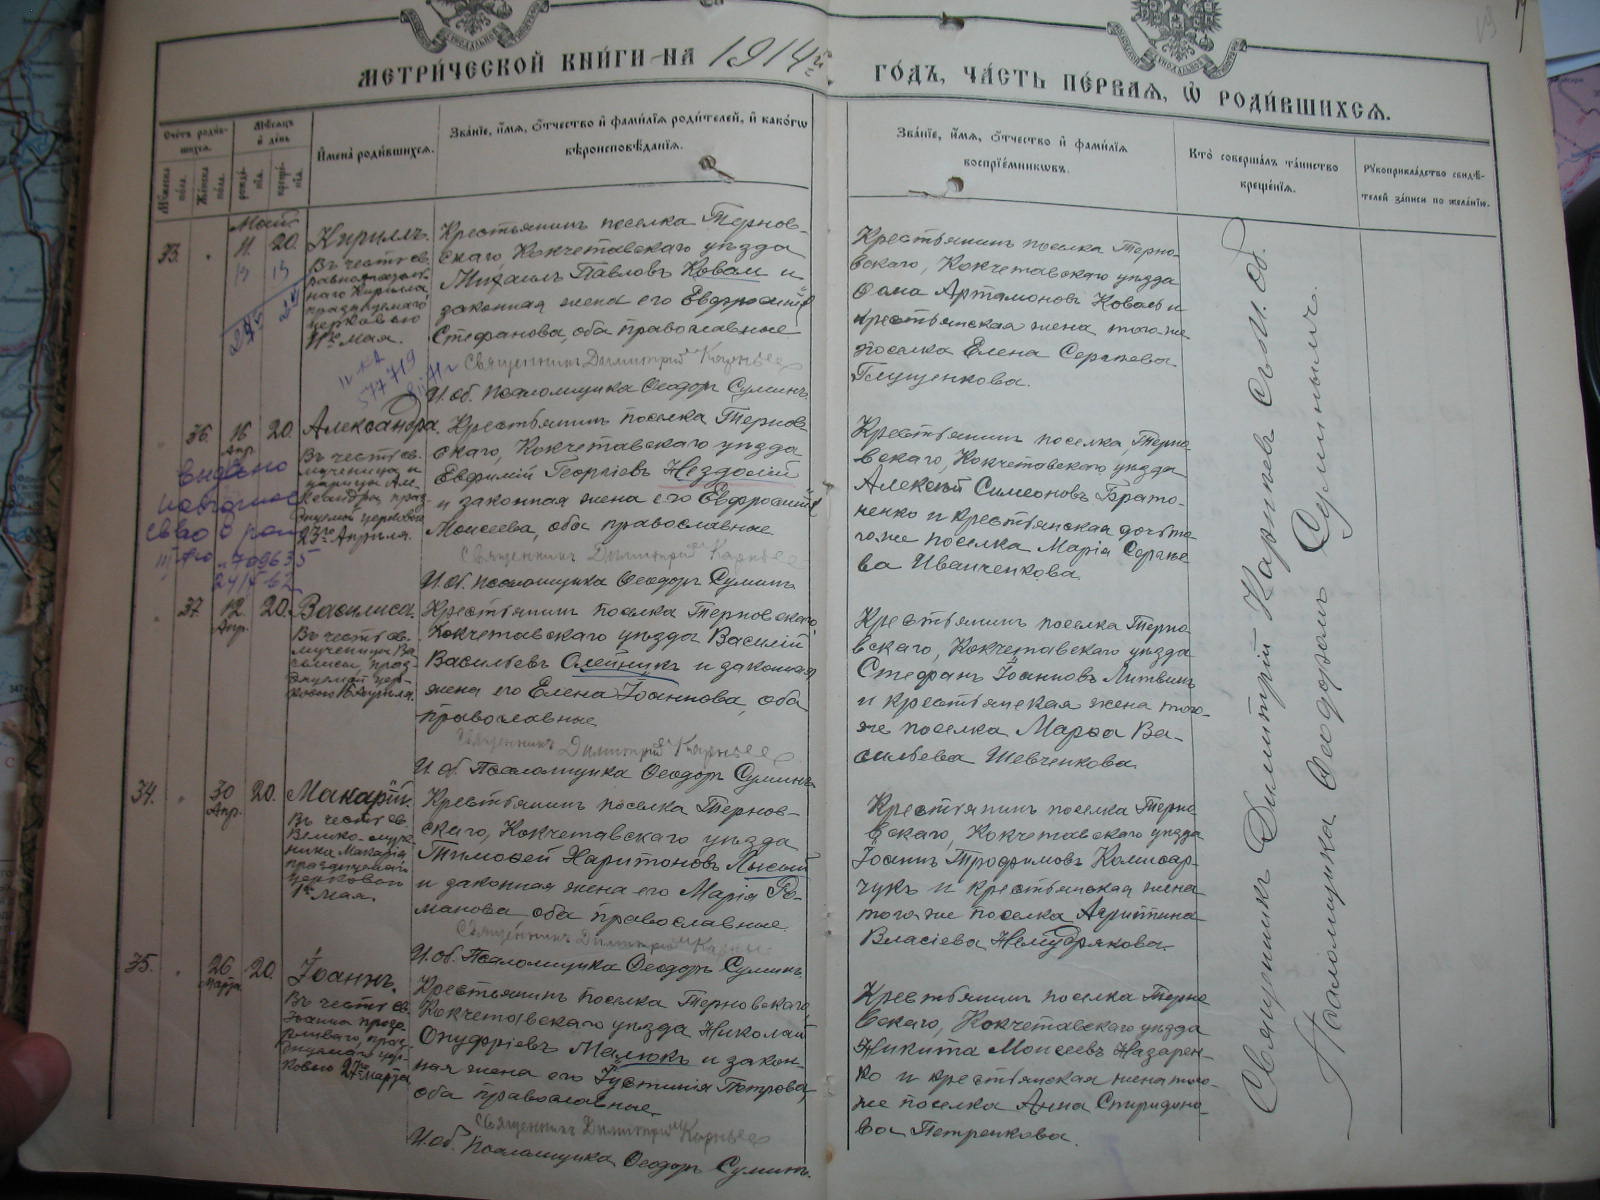 МЕТРИ́ЧЕСКОЙ КНИ́ГИ НА 1914й ГО́ДЪ, ЧА́СТЬ ПЕ́РВАЯ, Ѡ РОДИ́ВШИХСЯ.
Счетъ роди́вшихся.
Мѣсяцъ и день.
И́мена роди́вшихся.
Зва́ніе, и́мя, о́тчество и фами́лія роди́телей, и како́гѡ
вѣроисповѣ́данія.
Зва́ніе, и́мя, о́тчество и фами́лія
воспріе́мниковъ.
Кто̀ соверша́лъ та́инство
креще́нія.
Рꙋкоприкла́дство свидѣ́-
телей за́писи по жела́нію.
Мꙋжеска по́ла.
Же́нска по́ла.
рожде́нія.
креще́нія.
Май
33. 11. 20. Кириллъ.
Въ честь св.
равноапостоль-
наго Кирилла,
празднуемаго
церковью
11го мая.
Крестьянинъ поселка Тернов-
скаго, Кокчетавскаго уѣзда
Михаилъ Павловъ Коваль и
законная жена его Евфросинія
Стефанова, оба православные
Священникъ Димитрій Карпіевъ
И. об. псаломщика Ѳеодоръ Суминъ
Крестьянинъ поселка Терно-
вскаго, Кокчетавскаго уѣзда
Ѳома Артамоновъ Коваль и
крестьянская жена того же
поселка Елена Сергѣева
Глущенкова.
36. 16 Апр. 20. Александра.
Въ честь св.
мученицы и
царицы Але-
ксандры, праз-
днуемой церковью
23го Апрѣля.
Крестьянинъ поселка Тернов-
скаго, Кокчетавскаго уѣзда
Евфимій Георгіевъ Нездолій
и законная жена его Евфросинія
Моисеева, оба православные
Священникъ Димитрій Карпіевъ
И. об. псаломщика Ѳеодоръ Суминъ
Крестьянинъ поселка Терно-
вскаго, Кокчетавскаго уѣзда
Алексій Симеоновъ Брато-
ненко и крестьянская дочь то-
го же поселка Марія Сергѣе-
ва Иванченкова
выдано
повторное
св-во о рожд
24/V-62
37. 12 Апр. 20. Василиса.
Въ честь св.
мученицы Ва-
силисы, праз-
днуемой цер-
ковью 16 Апрѣля.
Крестьянинъ поселка Терновскаго,
Кокчетавскаго уѣзда Василій
Васильевъ Олейникъ и законная
жена его Елена Іоаннова, оба
православные
Священникъ Димитрій Карпіевъ
И. об. Псаломщика Ѳеодоръ Суминъ
Крестьянинъ поселка Терно-
вскаго, Кокчетавскаго уѣзда
Стефанъ Іоанновъ Литвинъ
и крестьянская жена того-
же поселка Марѳа Ва-
сильева Шевченкова
34. 30 Апр. 20. Макарій.
Въ честь св.
Велико-муче-
ника Макарія
празднуемаго
церковью
1го мая.
Крестьянинъ поселка Тернов-
скаго, Кокчетавскаго уѣзда
Тимоѳей Харитоновъ Лысый
и законная жена его Марія Ро-
манова, оба православные
Священникъ Димитрій Карпіевъ
И. об. Псаломщика Ѳеодоръ Суминъ
Крестьянинъ поселка Терно-
вскаго, Кокчетавскаго уѣзда
Іоаннъ Трофимовъ Комисар-
чукъ и крестьянская жена
того же поселка Агриппина
Власіева Немудрякова
35. 26 Марта 20. Іоаннъ.
Въ честь св.
Іоанна прозо-
рливаго, праз-
днуемаго цер-
ковью 27го марта
Крестьянинъ поселка Терновскаго,
Кокчетавскаго уѣзда Николай
Онуфріевъ Малюкъ и закон-
ная жена его Іустинія Петрова,
оба православные.
Священникъ Димитрій Карпіевъ
И. об. Псаломщика Ѳеодоръ Суминъ.
Крестьянинъ поселка Терно-
вскаго, Кокчетавскаго уѣзда
Никита Моисеевъ Назарен-
ко и крестьянская жена того-
же поселка Анна Спиридоно-
ва Петренкова.
Священникъ Димитрій Карпіевъ съ И. об.
Псаломщика Ѳеодоромъ Суминымъ.